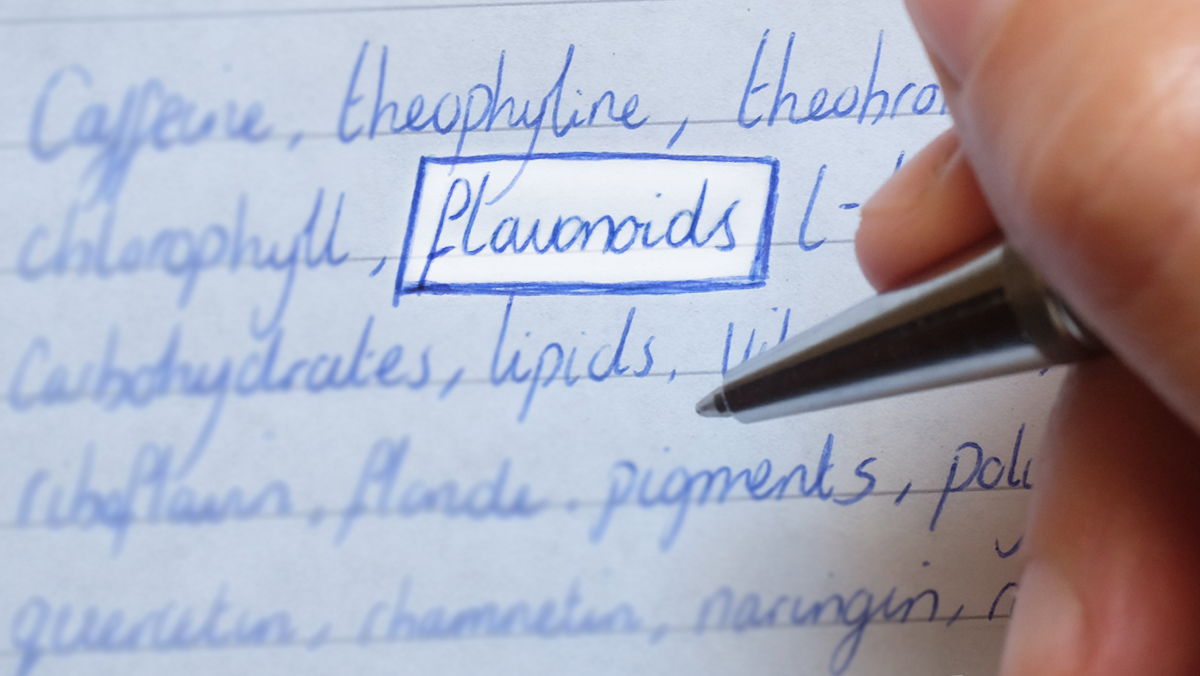 Caffeine, theophyline, theobro
chlorophyll, flavonoids l-
Carbohydrates, lipids, vit
riboflavin, fluoride. pigments, pol
quercetin, rhamnetin, naringin, r